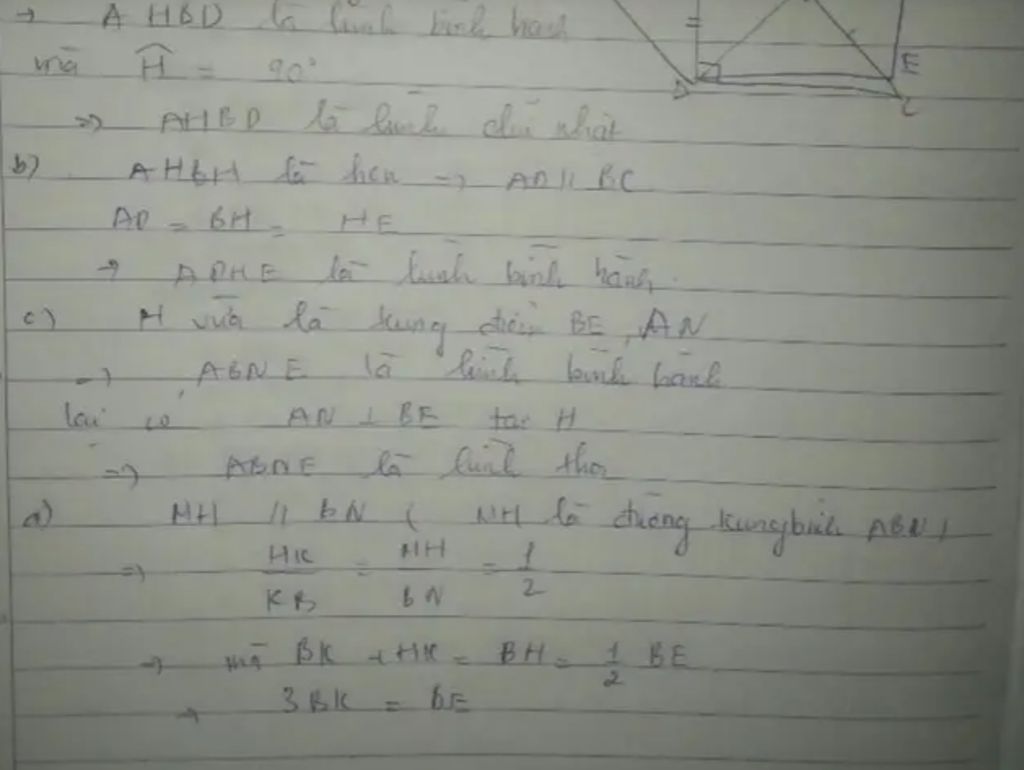 → AHBD là hình bình hành
mà Ĥ = 90°
E
D
C
=> AHBD là hình chữ nhật
b) AHBH là hcn → AD // BC
AD = BH = HE
→ ADHE là hình bình hành.
c) H vừa là trung điểm BE, AN
=> ABNE là hình bình hành
lại có AN ⊥ BE tại H
=> ABNE là hình thoi
d) MH // BN ( MH là đường trung bình ABN )
=> HK/KB = MH/BN = 1/2
→ mà BK + HK = BH = 1/2 BE
→ 3BK = BE